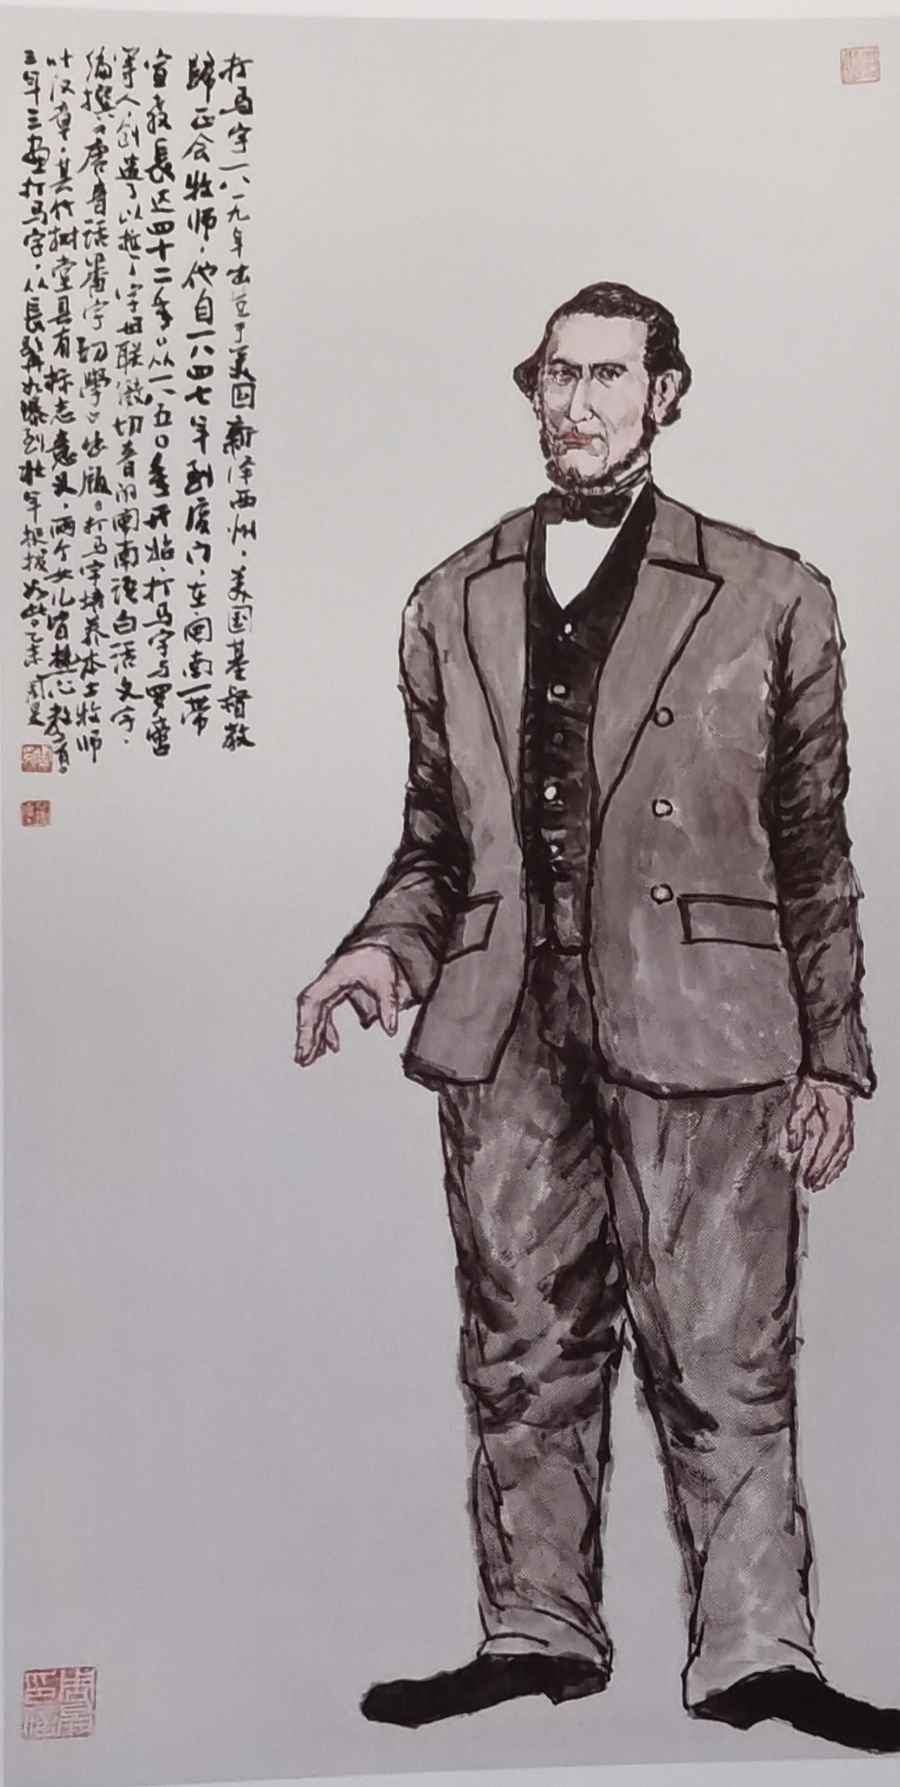 打马字一八一九年出生于美国新泽西州，美国基督教
归正会牧师，他自一八四七年到厦门，在闽南一带
宣教長达四十二年。从一八五〇年开始，打马字与罗啻
等人，创造了以拉丁字母联缀切音的闽南语白话文字，
编撰《唐音话番字初學》出版。打马字培养本土牧师
叶汉章，其竹树堂具有标志意义，两个女儿皆热心教育。
三画打马字，从長髯
到壮年挺拔如此。乙未